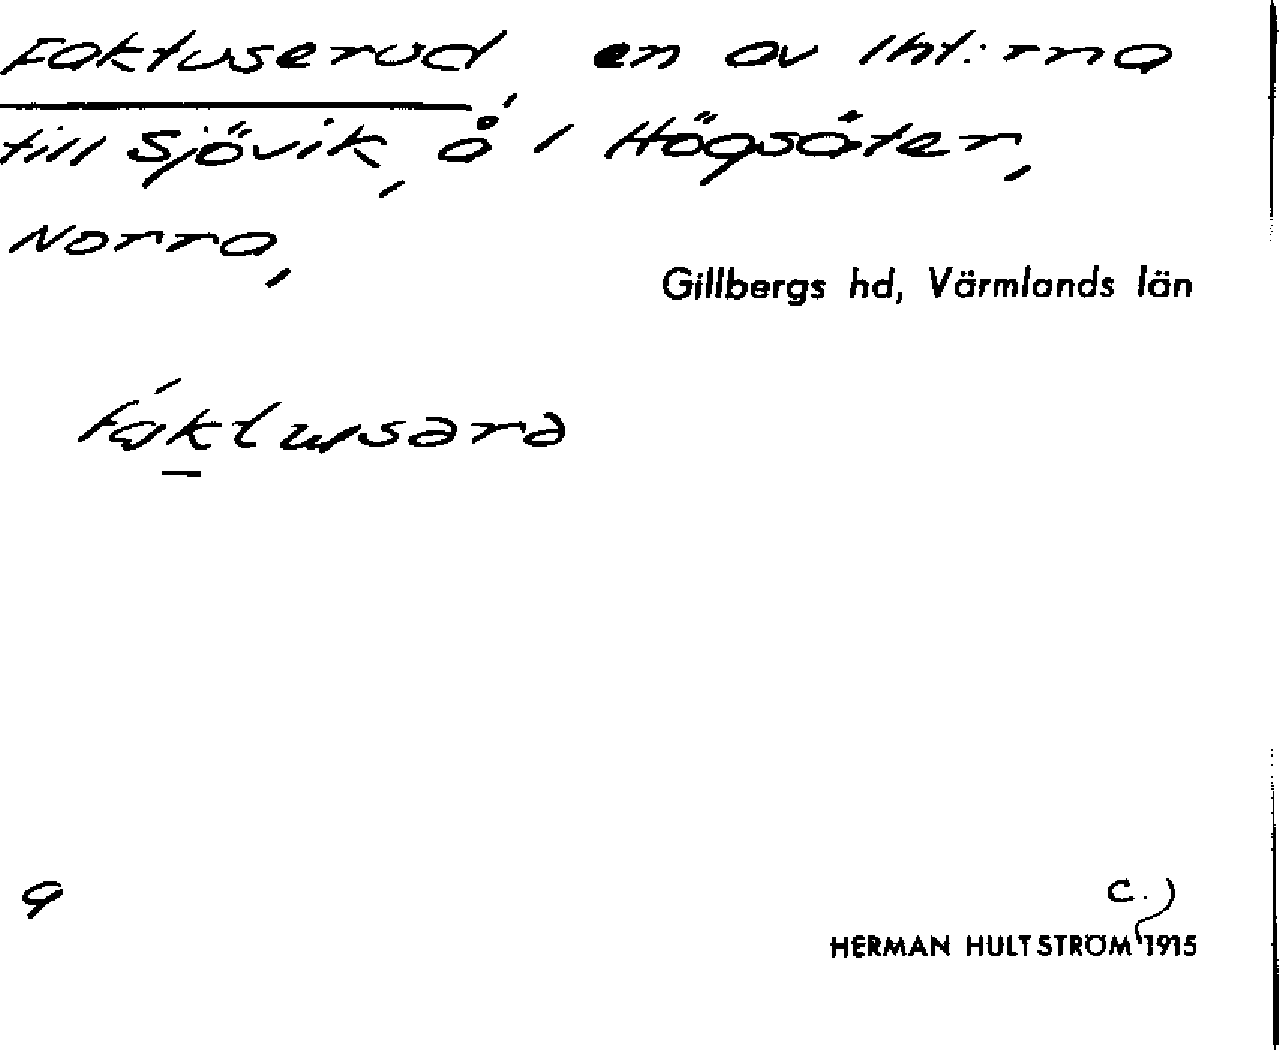 Faktuserud, en av lht:rna
till Sjövik, å i Högsäter,
Norra,
Gillbergs hd, Värmlands län
9
c.)
HERMAN HULTSTRÖM 1915